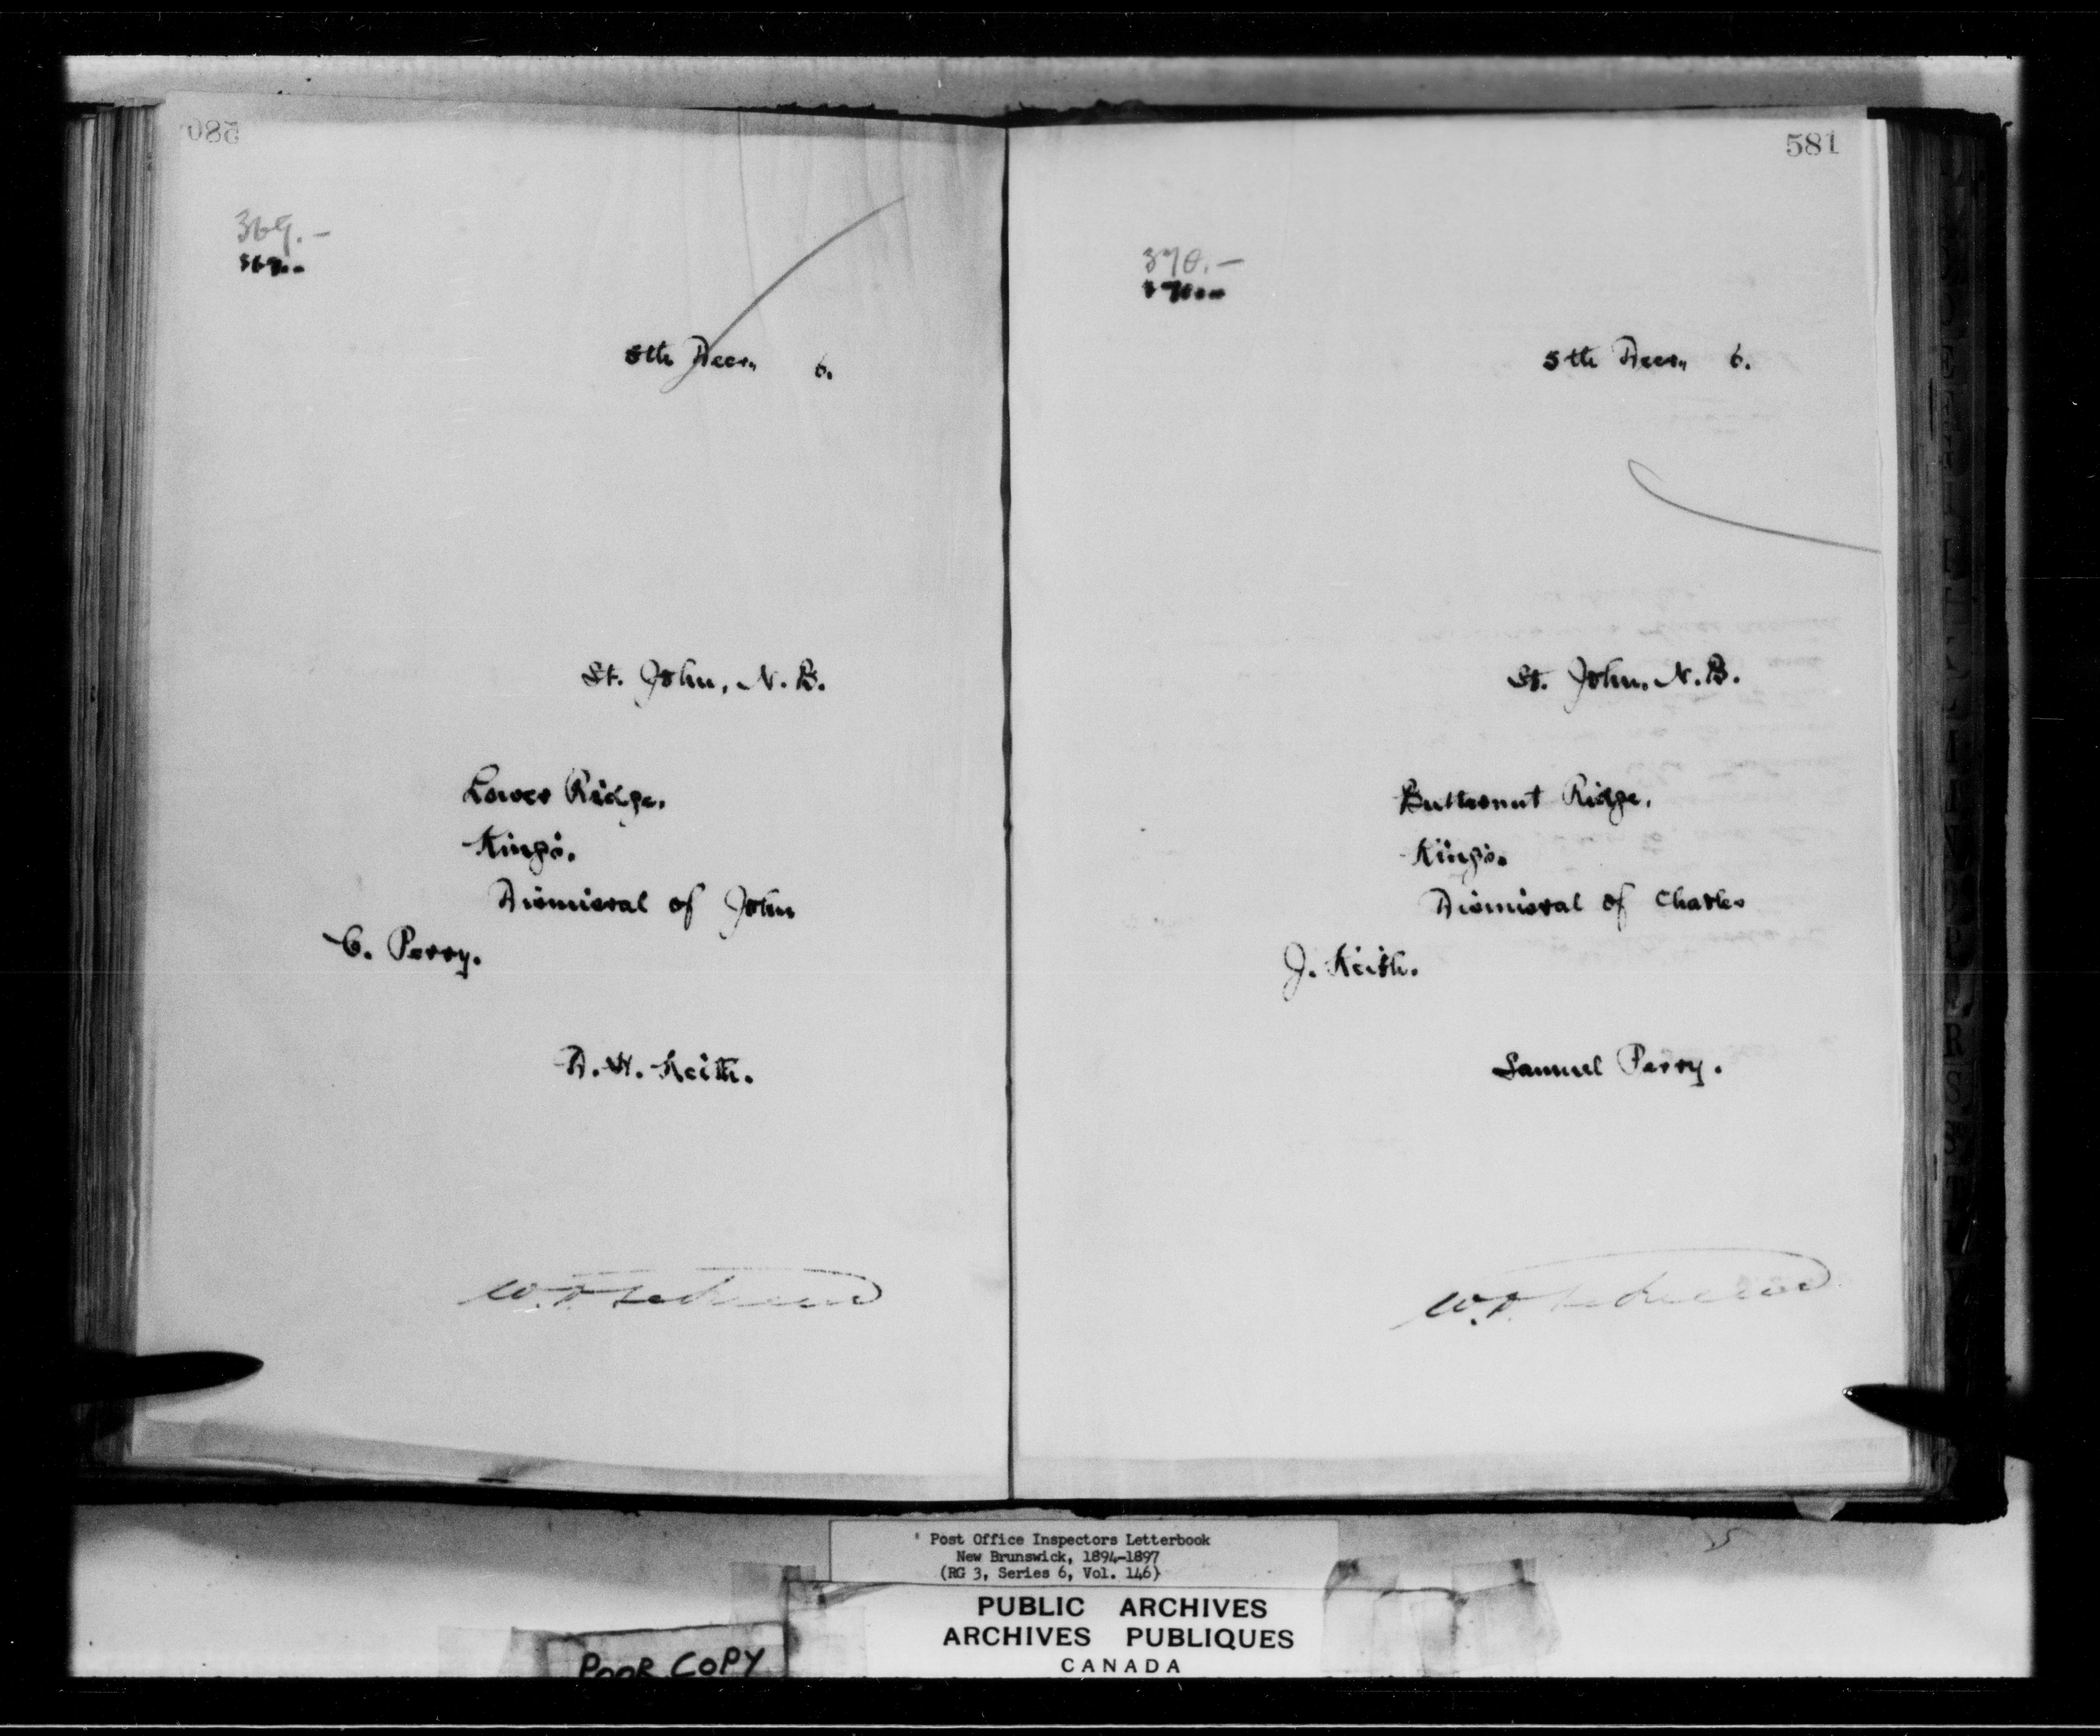 580
369.-
369.-
5th Decr., 6.
St. John, N.B.
Lower Ridge.
King's.
Dismissal of John
C. Perry.
D. H. Keith.
581
370.-
370.-
5th Decr., 6.
St. John, N.B.
Butternut Ridge,
King's.
Dismissal of Charles
J. Keith.
Samuel Perry.
Post Office Inspectors Letterbook
New Brunswick, 1894-1897
(RG 3, Series 6, Vol. 146)
PUBLIC ARCHIVES
ARCHIVES PUBLIQUES
CANADA
POOR COPY